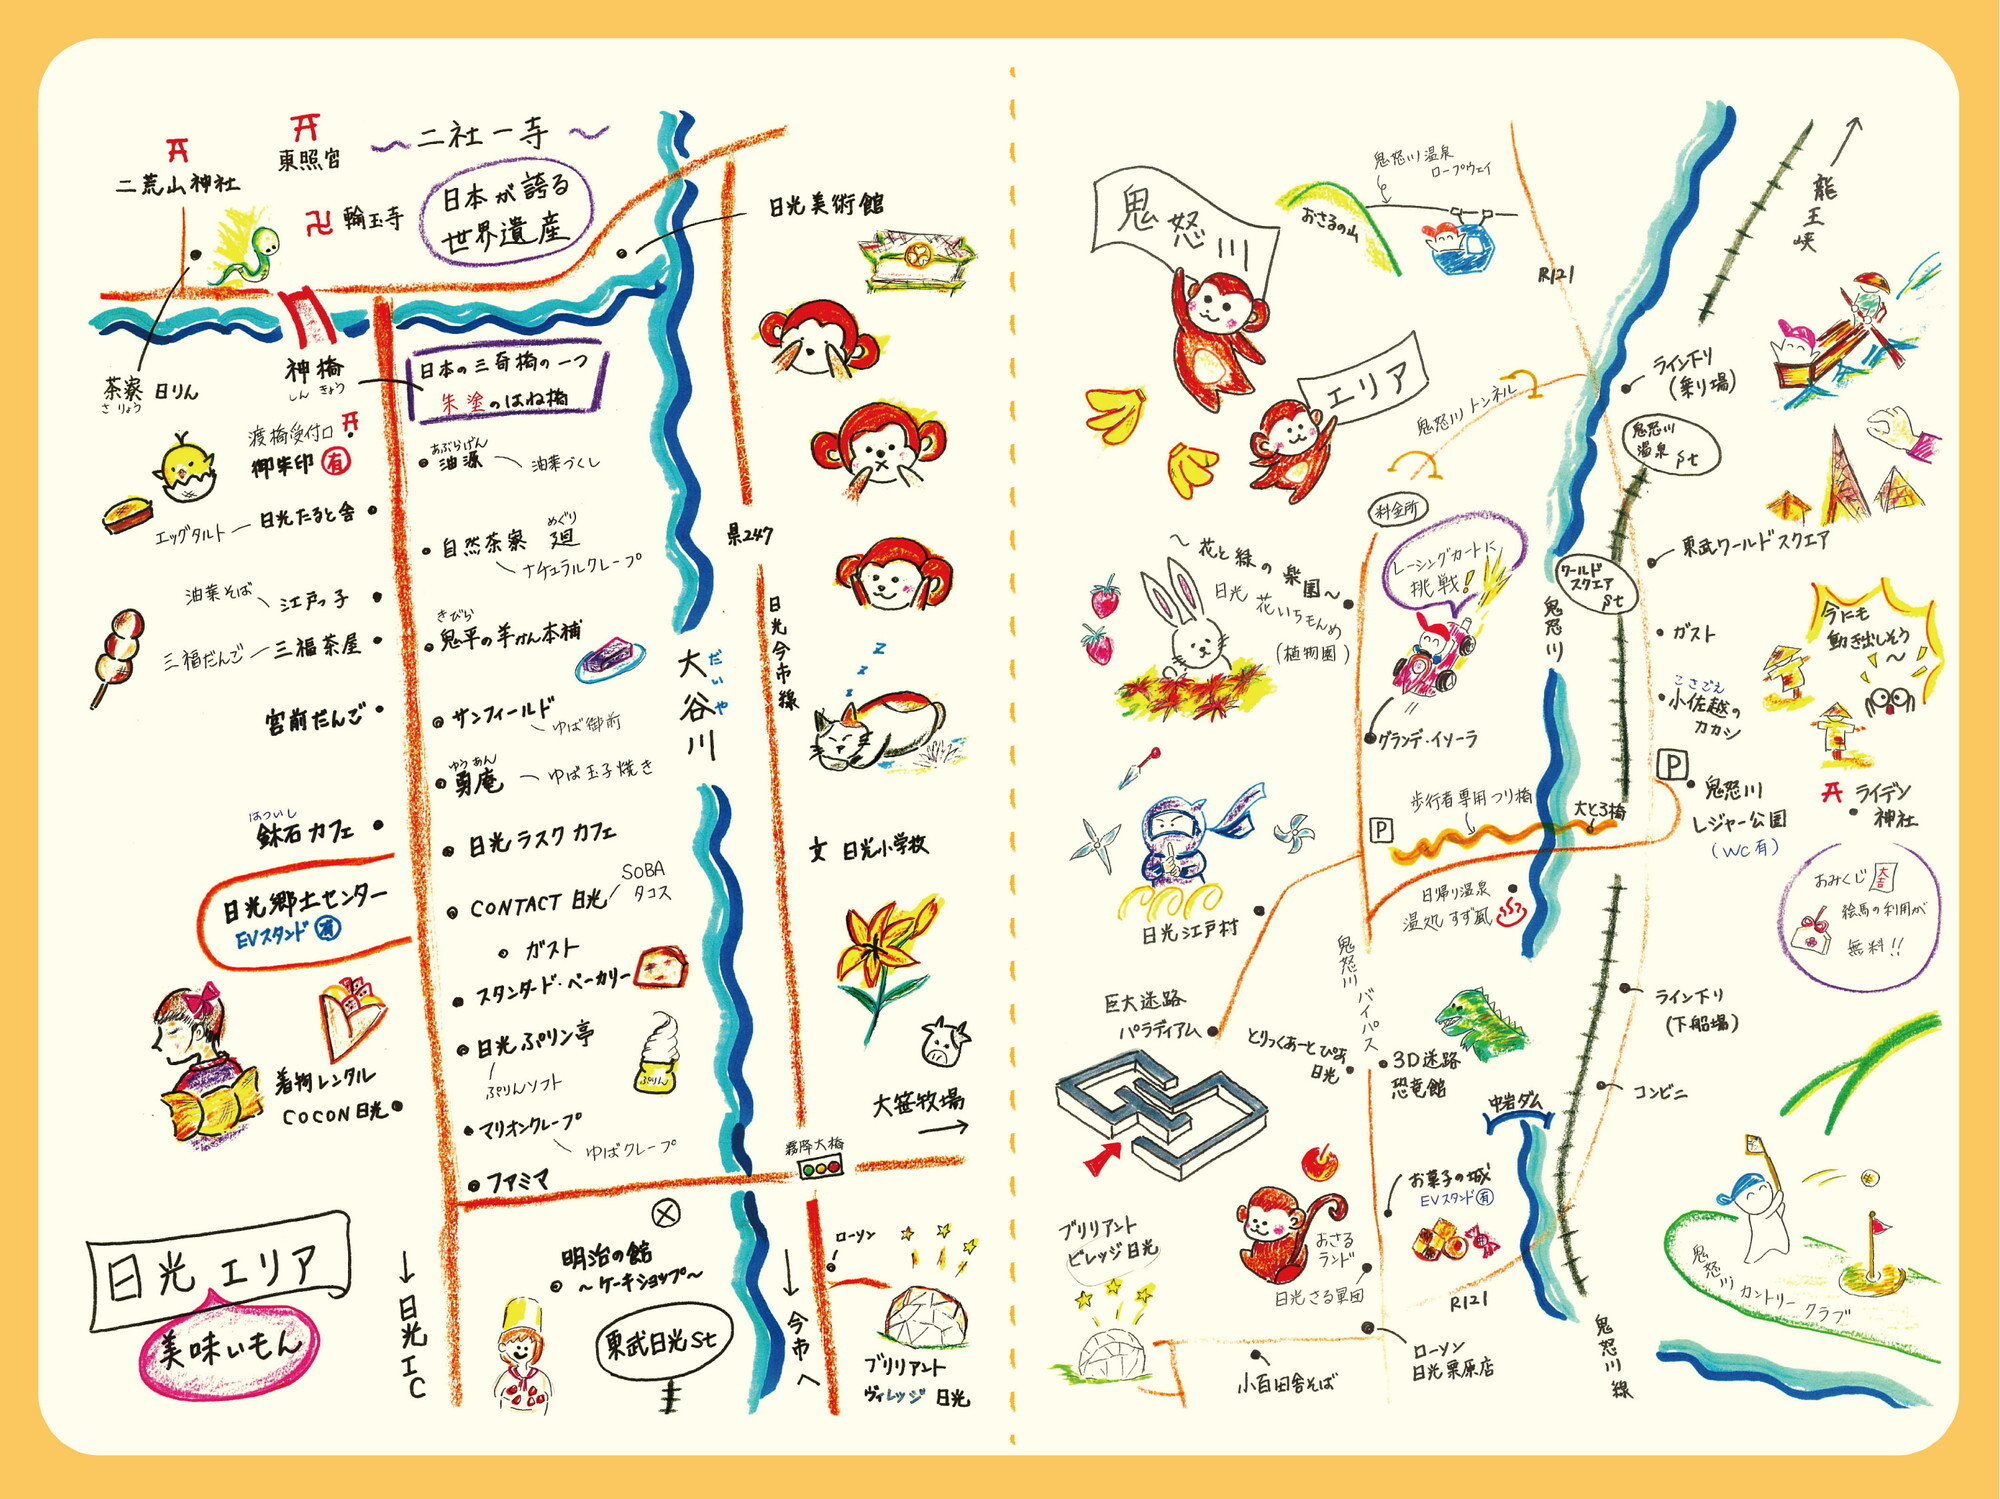 二社一寺
東照宮
二荒山神社
輪王寺
日本が誇る
世界遺産
日光美術館
神橋
しんきょう
日本の三奇橋の一つ
朱塗のはね橋
茶寮 日りん
さりょう
渡橋受付口
御朱印 有
あぶらげん
油源
油葉づくし
エッグタルト
日光たると舎
めぐり
自然茶寮 廻
ナチュラルクレープ
油葉そば
江戸っ子
三福だんご
三福茶屋
きびら
鬼平の羊かん本補
宮前だんご
サンフィールド
ゆば御前
ゆうあん
勇庵
ゆば玉子焼き
はついし
鉢石カフェ
日光ラスクカフェ
日光郷土センター
EVスタンド 有
CONTACT 日光
SOBA
タコス
ガスト
スタンダード・ベーカリー
着物レンタル
COCON日光
日光ぷりん亭
ぷりんソフト
ぷりん
マリオンクレープ
ゆばクレープ
ファミマ
日光エリア
美味いもん
↓日光IC
明治の館
〜ケーキショップ〜
東武日光St
大谷川
だいや
県247
日光今市線
文 日光小学校
大笹牧場
→
霧降大橋
ローソン
↓今市へ
ブリリアント
ヴィレッジ 日光
z
z
z
鬼怒川
エリア
鬼怒川温泉
ロープウェイ
おさるの山
R121
龍王峡
ライン下り
(乗り場)
鬼怒川トンネル
鬼怒川
温泉
St
料金所
レーシングカートに
挑戦!
〜花と緑の楽園〜
日光 花いちもんめ
(植物園)
グランデ・イソーラ
ワールド
スクエア
St
東武ワールドスクエア
鬼怒川
ガスト
こさごえ
小佐越の
カカシ
今にも
動き出しそう
〜
P
鬼怒川
レジャー公園
(WC有)
ライデン
神社
おみくじ
大吉
絵馬の利用が
無料!!
歩行者専用つり橋
大とろ橋
P
日帰り温泉
温処 すず風
日光江戸村
鬼怒川バイパス
巨大迷路
パラディアム
とりっくあーとぴあ
日光
3D迷路
恐竜館
ライン下り
(下船場)
コンビニ
中岩ダム
お菓子の城
EVスタンド 有
おさる
ランド
日光さる軍団
ブリリアント
ビレッジ日光
R121
ローソン
日光栗原店
小百田舎そば
鬼怒川線
鬼怒川カントリークラブ